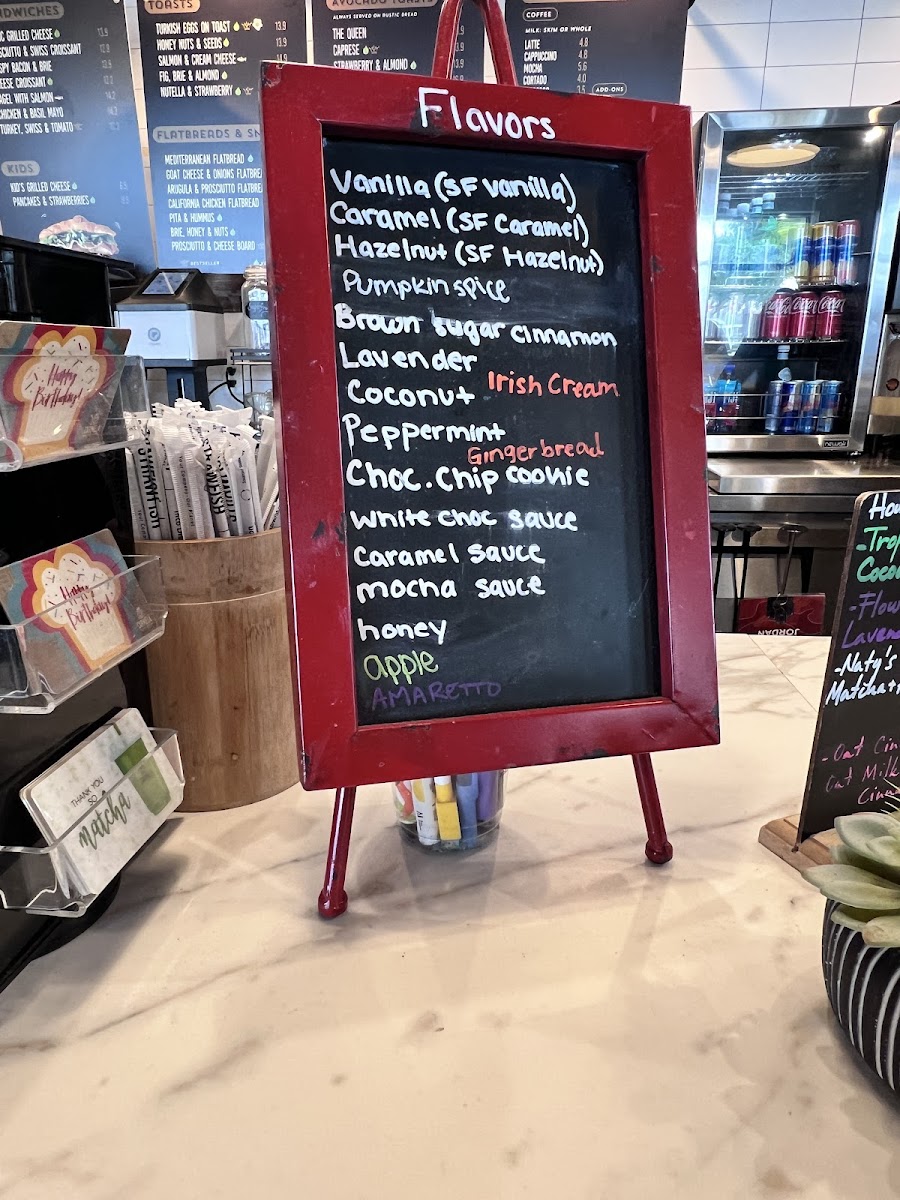 SANDWICHES
GRILLED CHEESE 13.9
PROSCIUTTO & SWISS CROISSANT 12.8
BACON & BRIE 13.9
CHEESE CROISSANT
BAGEL WITH SALMON
CHICKEN & BASIL MAYO
TURKEY, SWISS & TOMATO
KIDS
KID'S GRILLED CHEESE
PANCAKES & STRAWBERRIES
TOASTS
TURKISH EGGS ON TOAST 13.9
HONEY NUTS & SEEDS
SALMON & CREAM CHEESE
FIG, BRIE & ALMOND
NUTELLA & STRAWBERRY
FLATBREADS & SN
MEDITERRANEAN FLATBREAD
GOAT CHEESE & ONIONS FLATBREA
ARUGULA & PROSCIUTTO FLATBREA
CALIFORNIA CHICKEN FLATBREAD
PITA & HUMMUS
BRIE, HONEY & NUTS
PROSCIUTTO & CHEESE BOARD
BESTSELLER
AVOCADO TOASTS
ALWAYS SERVED ON RUSTIC BREAD
THE QUEEN
CAPRESE
STRAWBERRY & ALMOND
COFFEE
MILK: SKIM OR WHOLE
LATTE 4.8
CAPPUCCINO 4.8
MOCHA 5.6
CORTADO 4.0
3.5
ADD-ONS
Flavors
Vanilla (SF Vanilla)
Caramel (SF Caramel)
Hazelnut (SF Hazelnut)
Pumpkin spice
Brown sugar cinnamon
Lavender
Coconut Irish Cream
Peppermint
Gingerbread
Choc. Chip cookie
White choc sauce
Caramel sauce
mocha sauce
honey
apple
AMARETTO
Happy Birthday!
Happy Birthday!
THANK YOU
SO
matcha
Coca-Cola
newair
JORDAN
Hou
-Trop
Coco
-Flow
Lavend
-Naty's
Matcha+
-Oat Cin
Oat Milk
Cinn